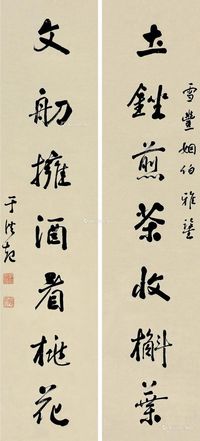 雪豐姻伯雅鑒
土銼煎茶收槲葉
文舠擁酒看桃花
于洪起